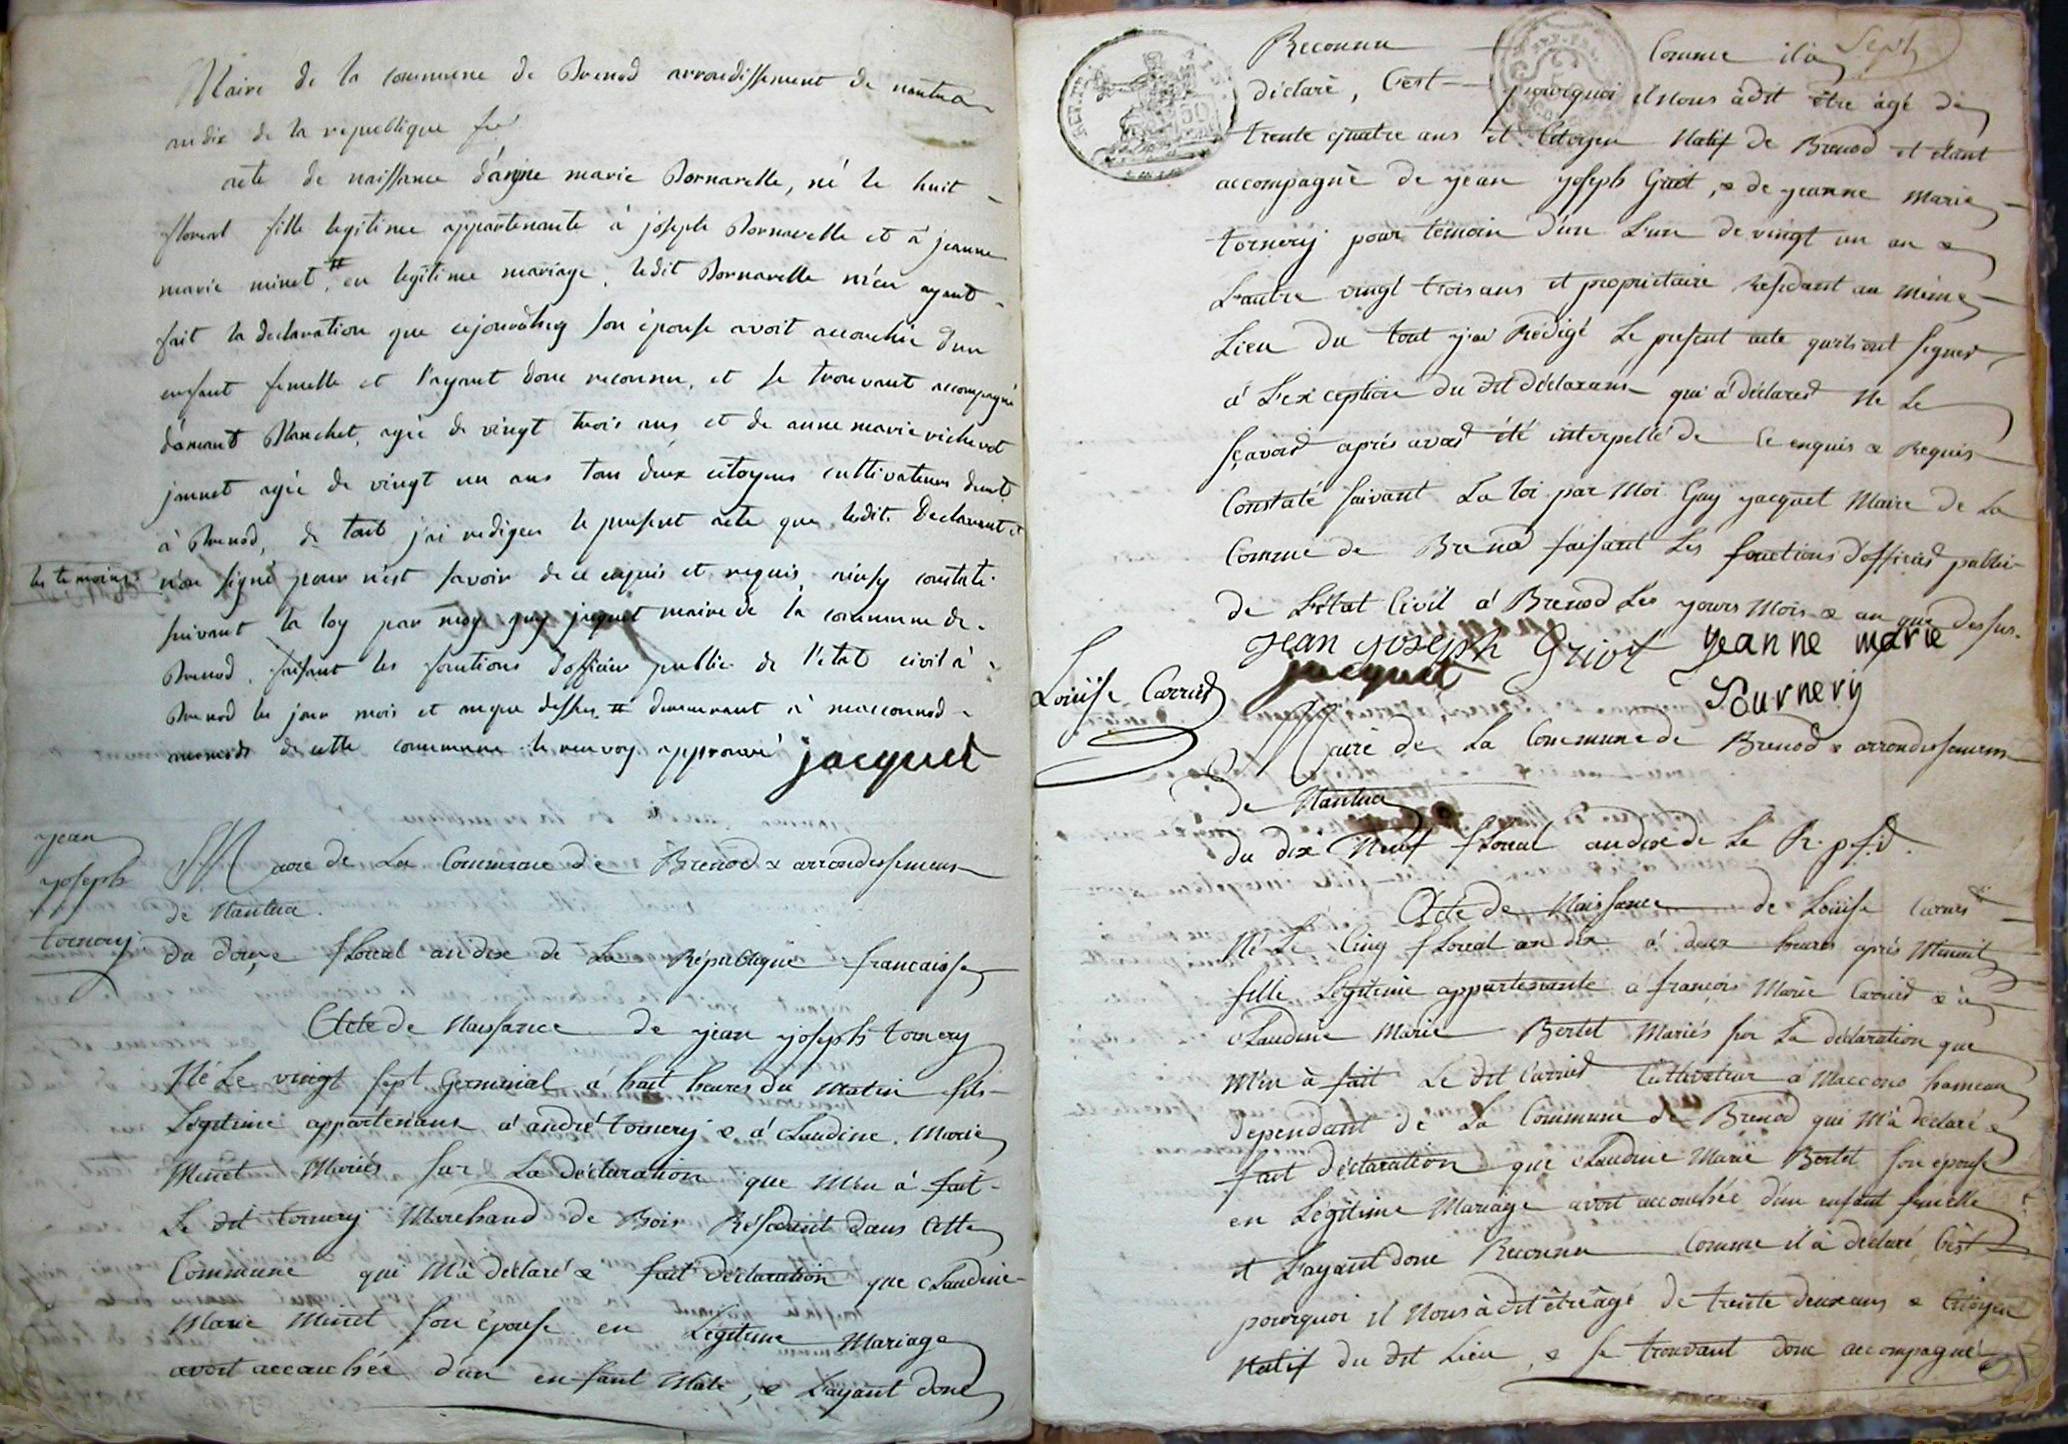 Maire de la commune de Brenod arrondissement de nantua
an dix de la republique fse
acte de naissance d'anne marie Bornarelle, né le huit
floreal fille legitime appartenante à joseph Bornarelle et à jeanne
marie minet # en legitime mariage, ledit Bornarelle m'en ayant
fait la declaration que cejourdhuy son épouse avoit accouchée d'un
enfant femelle et l'ayant donc reconnu, et se trouvant accompagné
d'amant Blanchet, agée de vingt trois ans et de anne marie richerot
jannet agée de vingt un ans tou deux citoyens cultivateurs dmt
à Brenod, de tout j'ai rediger le present acte que ledit Declarant et
les temoins
n'on signé pour n'est savoir de ce enquis et requis, ainsy constaté
suivant la loy par moy guy jaquet maire de la commune de
Brenod, faisant les fonctions d'officier public de l'état civil à
Brenod les jour mois et an que dessus. # demeurant à macconnod
annexde de cette commune le renvoy approuvé jacquet
yean
yoseph
tornery
Maire de La Commune de Brenod & arrondissement
de Nantua.
du douze floreal an dix de La République francaisse
Acte de Naissance de yean yoseph tornery
Né Le vingt sept Germinal à huit heures du matin fils
Légitime appartenant à andré tornery & à Claudine Marie
Minet Mariés sur La déclaration que M'en à fait
Le dit tornery Marchand de Bois Résidant dans Cette
Commune qui M'à déclaré & fait déclaration que Claudine
Marie Minet son épouse en Légitime Mariage
avoit accouchée d'un enfant Male, & L'ayant donc
Sept
Reconnu Comme il à
déclaré, C'est pourquoi il Nous à dit être àgé de
trente quatre ans et Citoyen Natif de Brenod et étant
accompagnè de yean yoseph Griot, & de yeanne Marie
tornery pour témoin d'un L'un de vingt un an &
L'autre vingt trois ans et propriétaire Résidant au même
Lieu du tout y'ai Rédigé Le present acte qu'ils ont signer
à L'exception du dit déclarant qui à déclarer Ne Le
sçavoir aprés avoir été interpellé de Ce enquis & Requis
Constaté suivant La loi par Moi Guy yacquet Maire de La
Commune de Brenod faisant Les fonctions d'officier public
de L'état Civil à Brenod Les yours Mois & an que dessus.
jean yoseph Griot yeanne marie
jacquet Tournery
Louïse Carrier
Maire de La Commune de Brenod & arrondissement
de Nantua
du dix Neuf floreal an dix de La R. p. f.
Acte de Naissance de Louïse Carrier
Né Le Cinq floreal an dix à deux heures aprés Minuit
fille Légitime appartenante à françois Marie Carrier & à
Claudine Marie Bertet Mariés sur La déclaration que
M'en à fait Le dit Carrier Cultivateur à Maccono hameau
dependant de La Commune de Brenod qui M'à declaré &
fait déclaration que Claudine Marie Bertet son épouse
en Légitime Mariage avoit accouchée d'un enfant femelle
et L'ayant donc Reconnu Comme il à declaré C'est
pourquoi il Nous à dit être àgé de trente deux ans & Citoyen
Natif du dit Lieu, & se trouvant donc accompagné